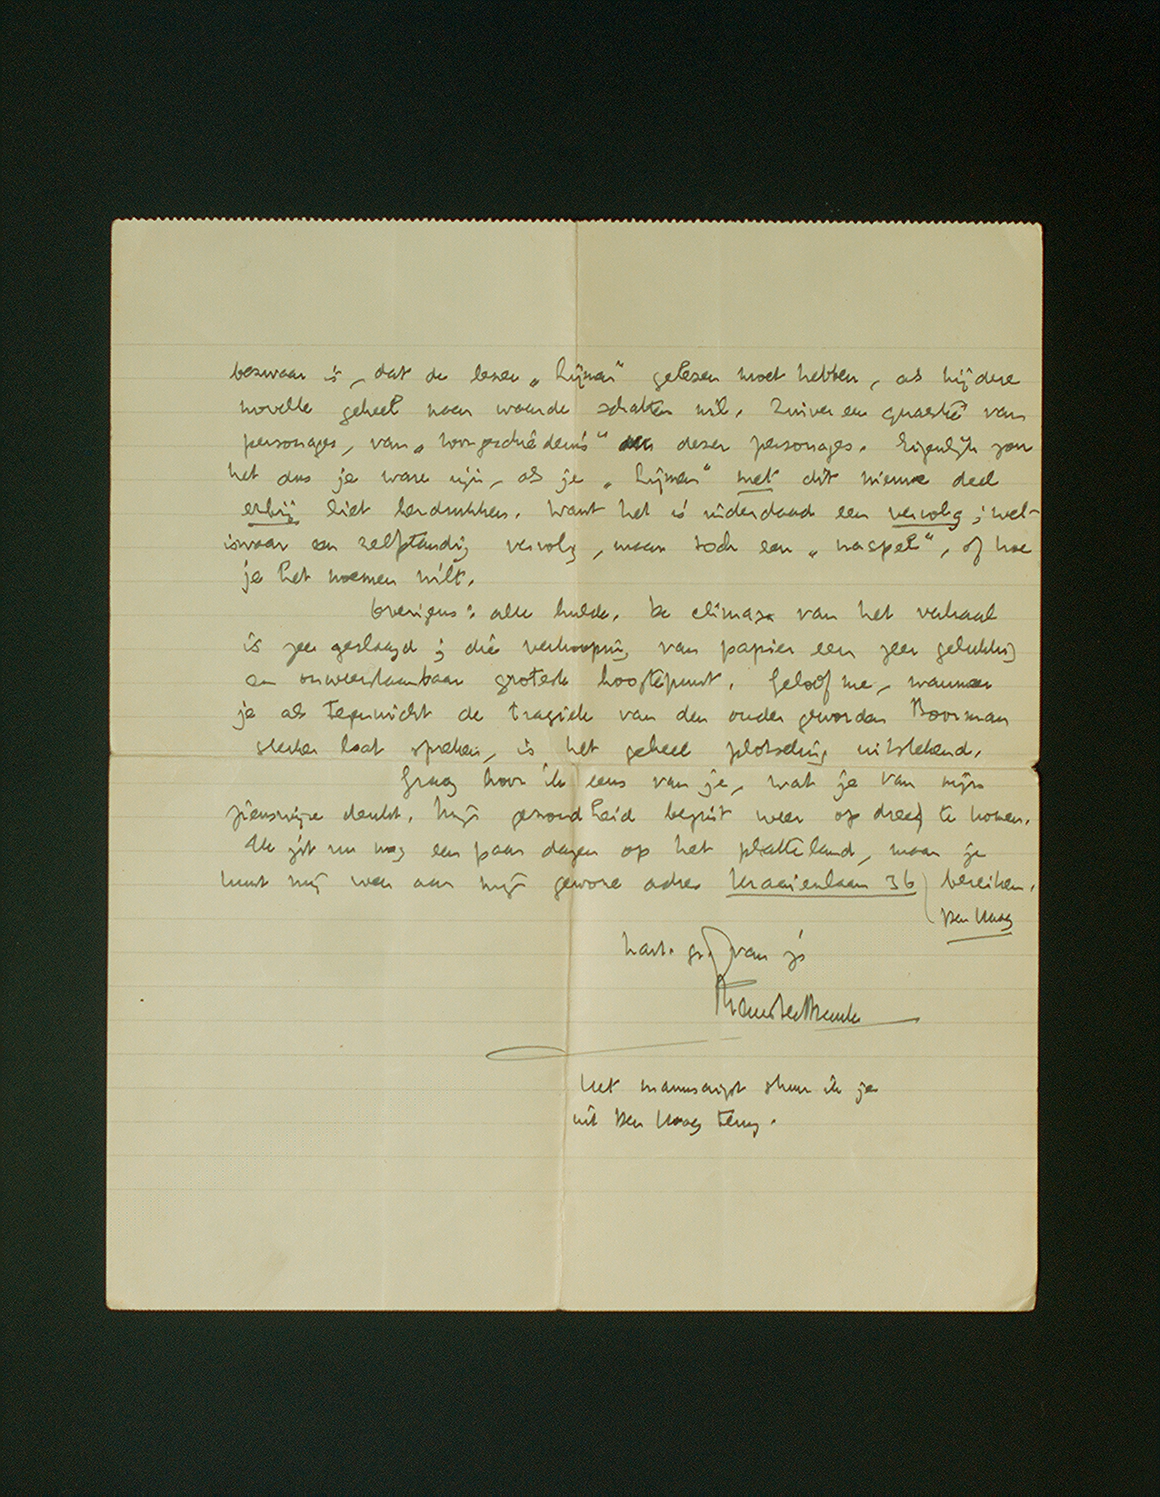 bezwaar is, dat de lezer „Lijmen" gelezen moet hebben, als hij deze
novelle geheel naar waarde schatten wil. Zuiver een quaestie van
personages, van „voorgeschiedenis" dezer personages. Eigenlijk zou
het dus je ware zijn, als je „Lijmen" met dit nieuwe deel
erbij liet herdrukken. Want het is inderdaad een vervolg; wel-
iswaar een zelfstandig vervolg, maar toch een „naspel", of hoe
je het noemen wilt.
Overigens: alle hulde. De climax van het verhaal
is zeer geslaagd; die verkooping van papier een zeer gelukkig
en onweerstaanbaar grotesk hoogtepunt. Geloof me, wanneer
je als tegenwicht de tragiek van den ouder geworden Boorman
sterker laat spreken, is het geheel plotseling uitstekend.
Graag hoor ik eens van je, wat je van mijn
zienswijze denkt. Mijn gezondheid begint weer op dreef te komen.
Ik zit nu nog een paar dagen op het platteland, maar je
kunt mij weer aan mijn gewone adres Kraaienlaan 36 bereiken.
Den Haag
hart. gr. van je
Menno ter Braak
Het manuscript stuur ik je
uit Den Haag terug.